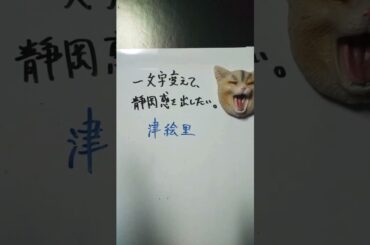 一文字変えて、
静岡感を出したい。
津絵里